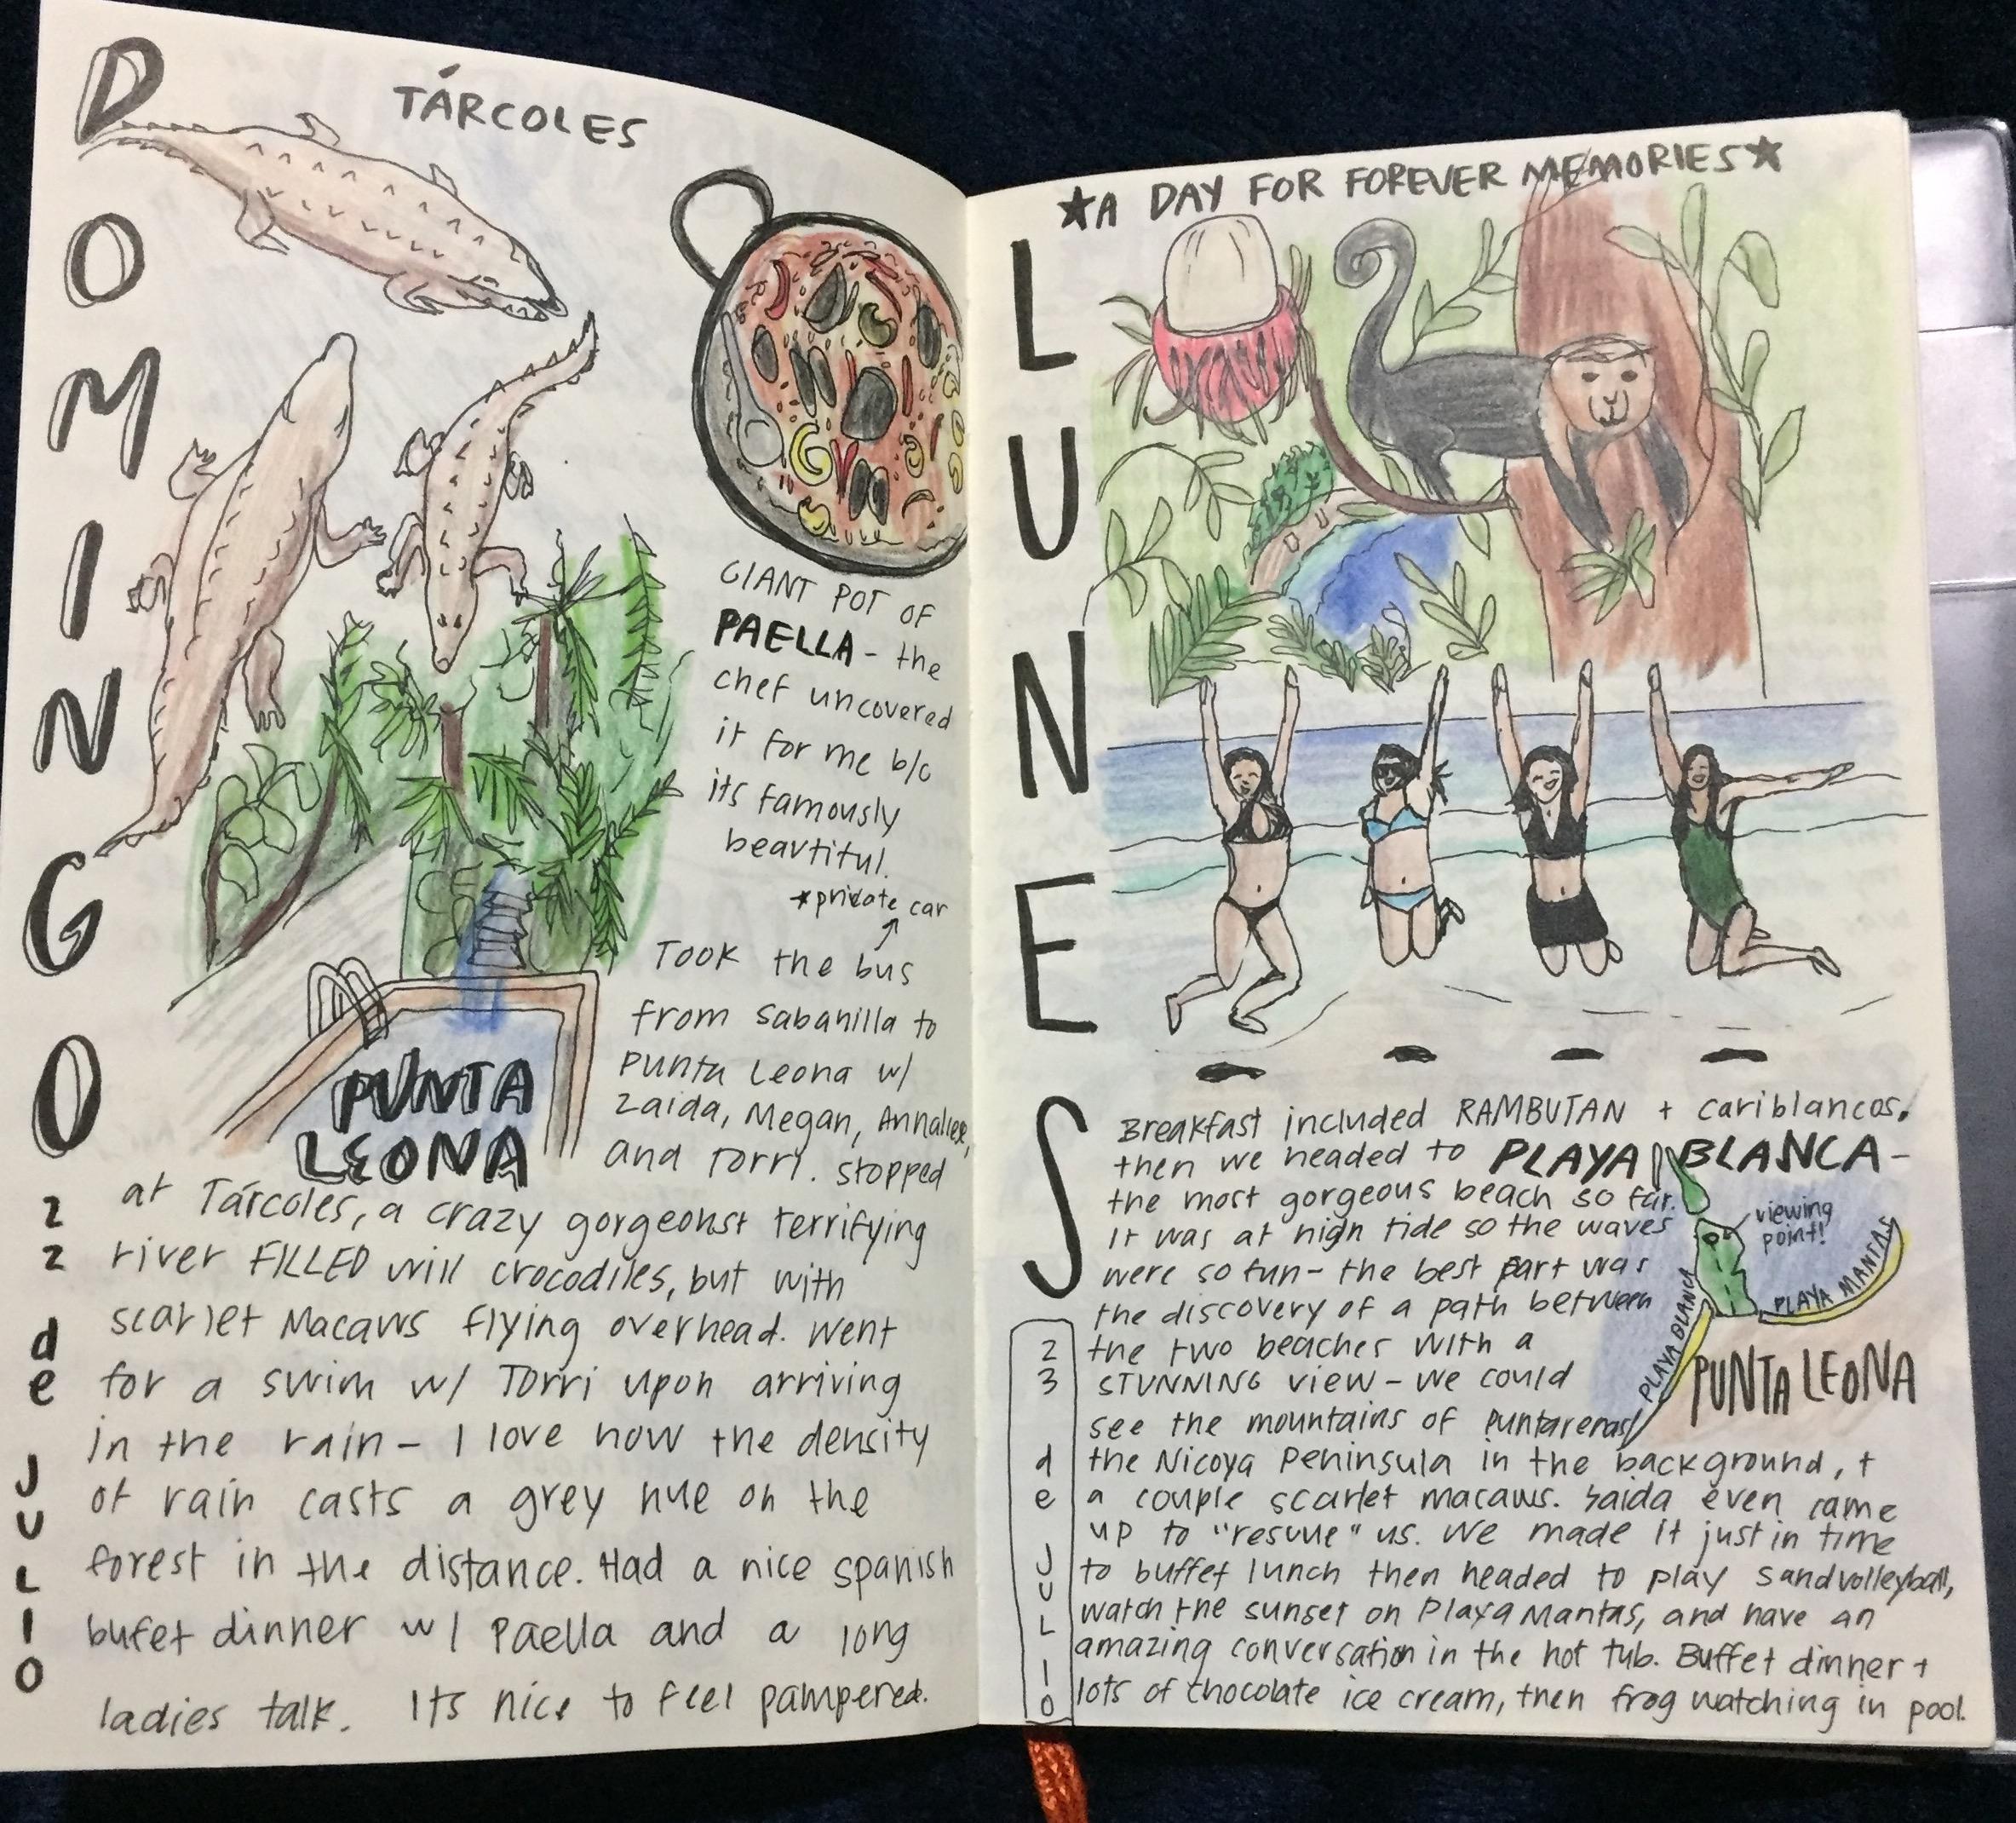 DOMINGO
22 de JULIO
TÁRCOLES
GIANT POT OF
PAELLA - the
chef uncovered
it for me b/c
its famously
beavtitul.
*private car
Took the bus
from Sabanilla to
Punta Leona w/
Zaida, Megan, Annaliese,
and Torri. stopped
PUNTA
LEONA
at Tárcoles, a crazy gorgeonst terrifying
river FILLED will crocodiles, but with
scarlet Macaws flying overhead. Went
for a swim w/ Torri upon arriving
in the rain - I love how the density
of rain casts a grey hue on the
forest in the distance. Had a nice spanish
bufet dinner w/ Paella and a long
ladies talk. Its nice to feel pampered.
★A DAY FOR FOREVER MEMORIES★
LUNES
23 de JULIO
Breakfast included RAMBUTAN + cariblancos.
then we headed to PLAYA BLANCA-
the most gorgeous beach so far.
It was at high tide so the waves
were so fun - the best part was
the discovery of a path between
the two beaches with a
STUNNING view - we could
see the mountains of Puntarenas/
the Nicoya Peninsula in the background, +
a couple scarlet macaws. Saida even came
up to "rescue" us. We made it just in time
to buffet lunch then headed to play sandvolleyball,
watch the sunset on Playa Mantas, and have an
amazing conversation in the hot tub. Buffet dinner +
lots of chocolate ice cream, then frog watching in pool.
viewing
point!
PLAYA BLANCA
PLAYA MANTAS
PUNTA LEONA